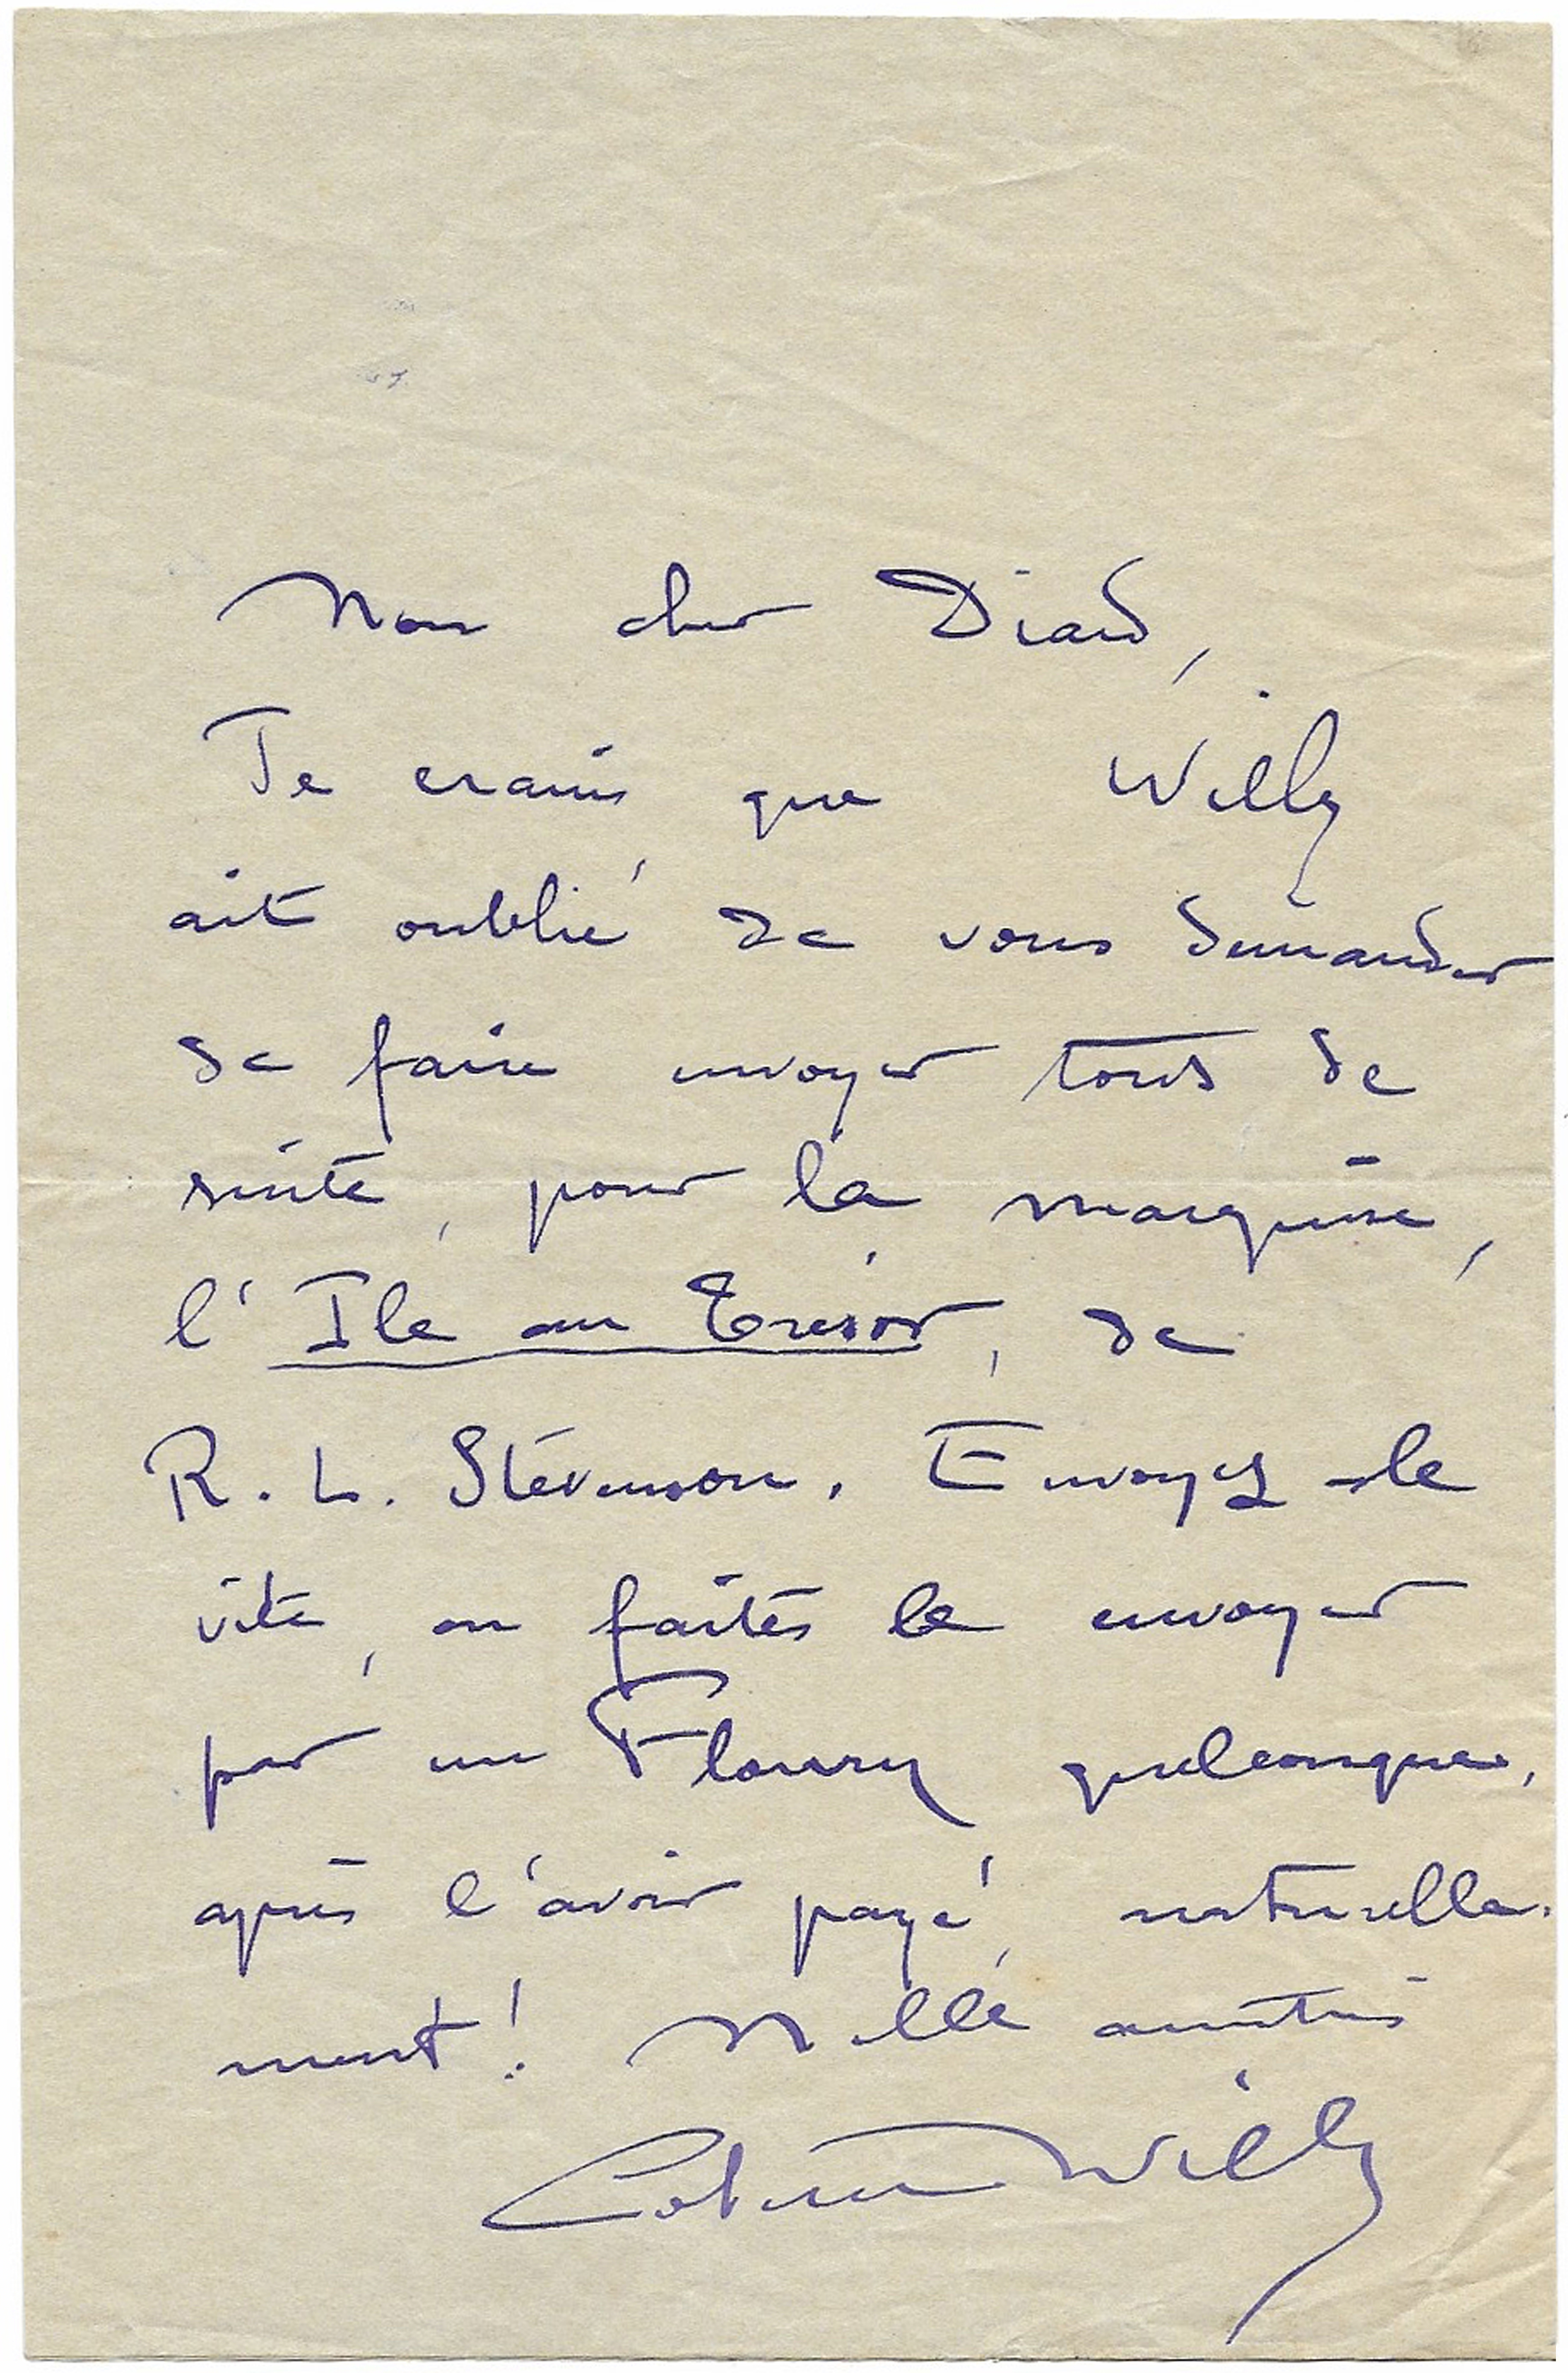 Mon cher Diard,
Je crains que Willy
ait oublié de vous demander
de faire envoyer tout de
suite, pour la marquise,
l'Ile au Trésor, de
R. L. Stevenson. Envoyez-le
vite, ou faites le envoyer
par un Floury quelconque,
après l'avoir payé, naturelle-
ment! Mille amitiés
Colette Willy